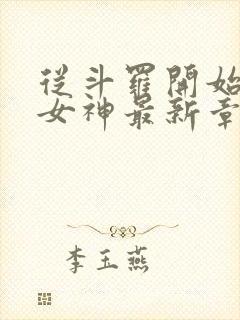 從斗羅開始
女神最新章
李玉燕